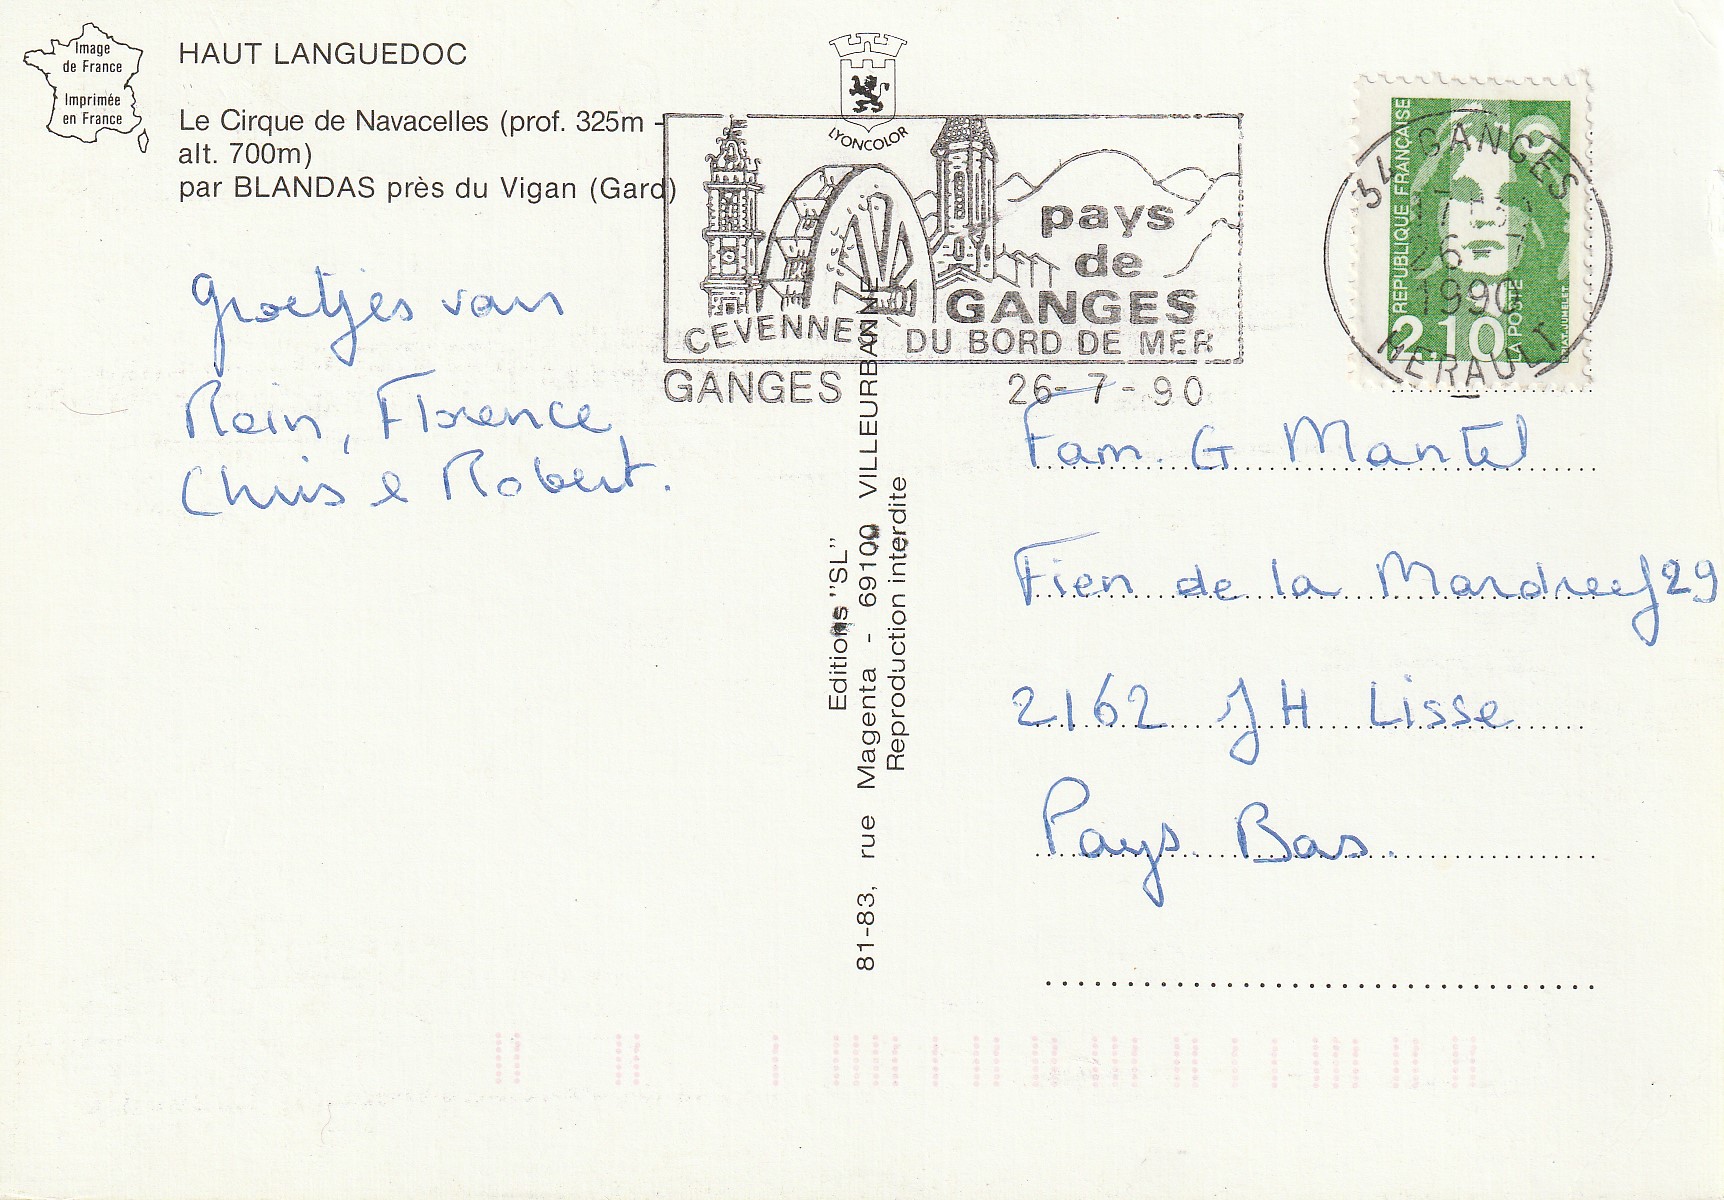 Image
de France
Imprimée
en France
HAUT LANGUEDOC
Le Cirque de Navacelles (prof. 325m -
alt. 700m)
par BLANDAS près du Vigan (Gard)
LYONCOLOR
pays
de
GANGES
CEVENNE
DU BORD DE MER
GANGES 26-7-90
REPUBLIQUE FRANÇAISE
2,10
LA POSTE
34 GANGES
26-7
1990
HERAULT
groetjes van
Rein, Florence,
Chris e Robert.
Editions "SL"
81-83, rue Magenta - 69100 VILLEURBANNE
Reproduction interdite
Fam. G Mantel
Fien de la Mardreef 29
2162 JH Lisse
Pays Bas.